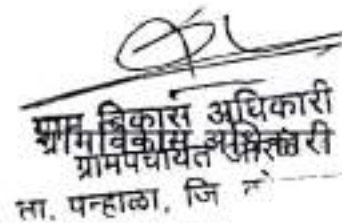 ग्राम विकास अधिकारी
ग्रामविकास अधिकारी
ग्रामपंचायत
ता. पन्हाळा, जि